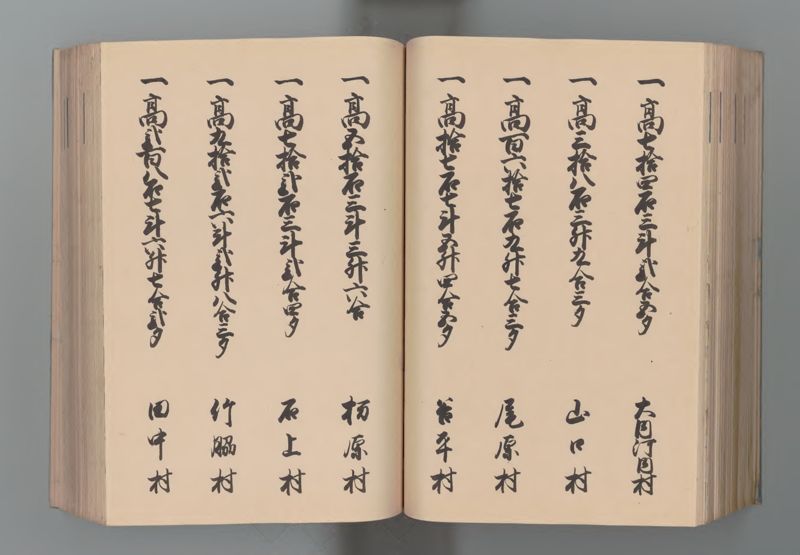 一 高七拾四石三斗弐合五夕
大角汀目村
一 高三拾八石三升九合三夕
山口村
一 高百六拾七石九升七合三夕
尾原村
一 高拾七石七斗五升四合五夕
谷平村
一 高五拾石三斗三升六合
栢原村
一 高七拾弐石三斗弐合四夕
石上村
一 高九拾弐石六斗弐升八合三夕
竹脇村
一 高弐百八石七斗六升七合弐夕
田中村